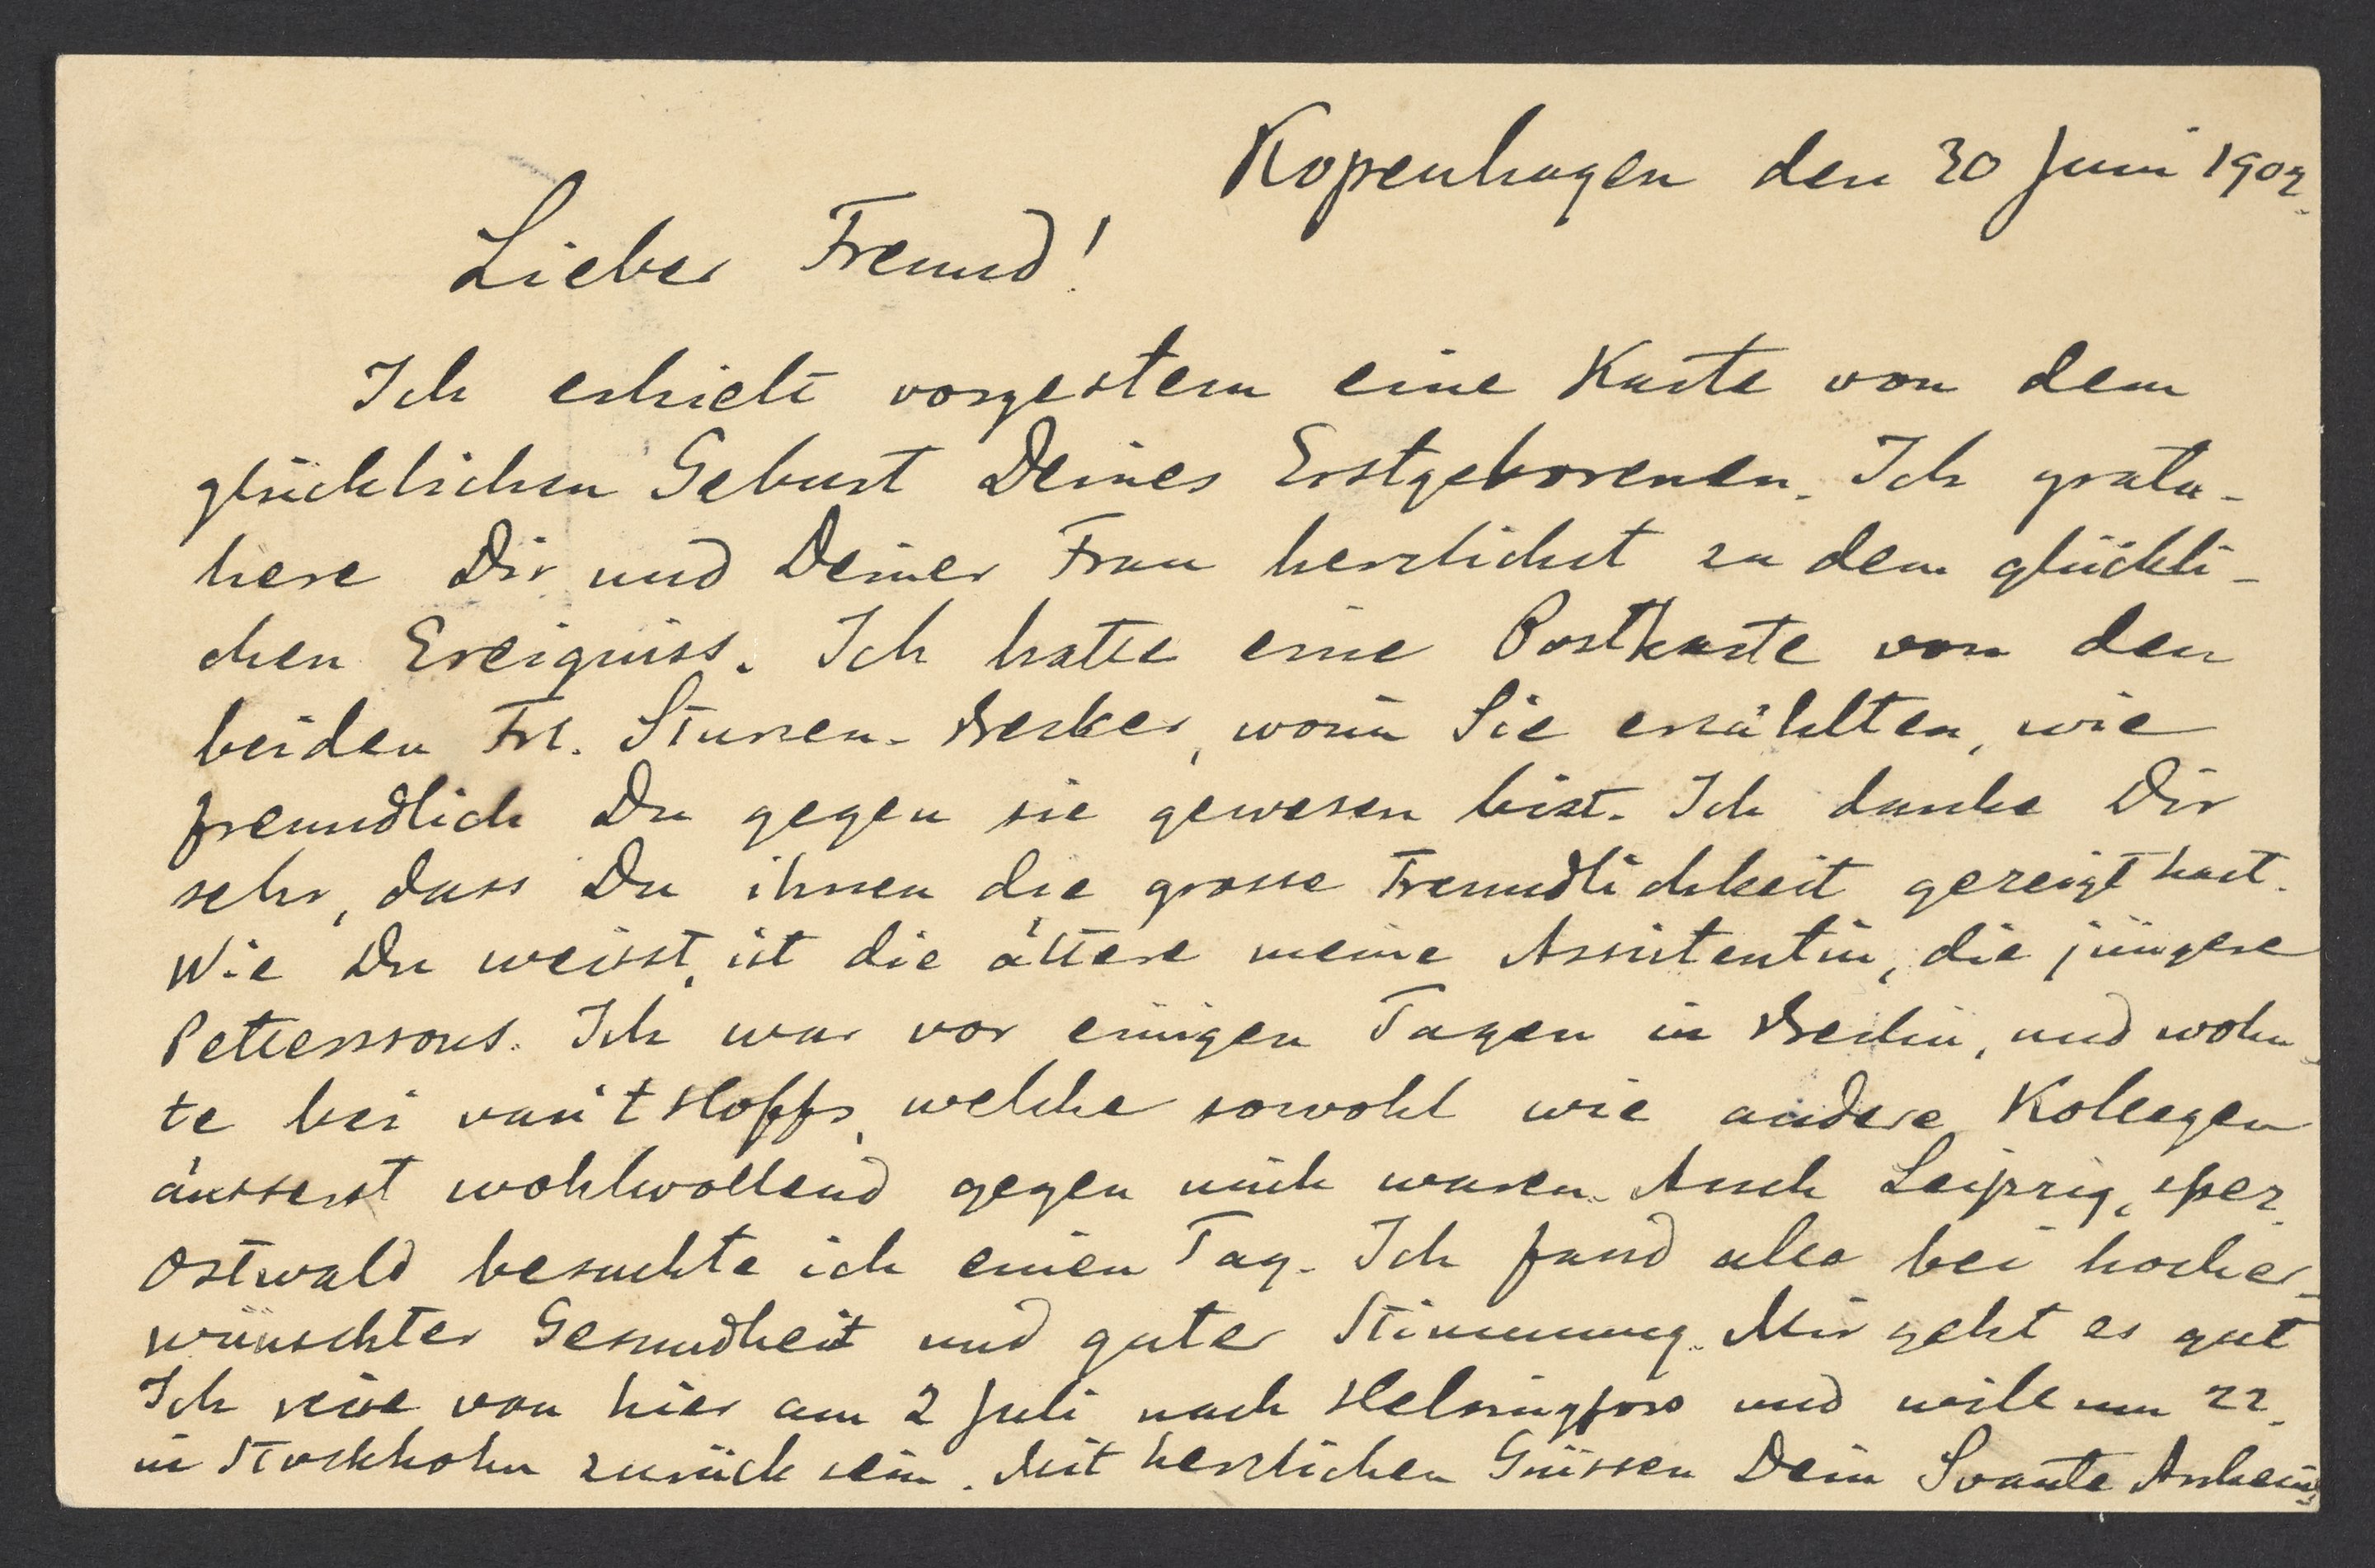 Kopenhagen den 30 Juni 1902.
Lieber Freund!
Ich erhielt vorgestern eine Karte von dem
glücklichen Geburt Deines Erstgeborenen. Ich gratu-
liere Dir und Deiner Frau herzlichst zu dem glückli-
chen Ereigniss. Ich hatte eine Postkarte von den
beiden Frl. Stursen-Becker, worin Sie erzählten, wie
freundlich Du gegen sie gewesen bist. Ich danke Dir
sehr, dass Du ihnen die grosse Freundlichkeit gezeigt hast.
Wie Du weisst, ist die ältere meine Assistentin, die jüngere
Petterssons. Ich war vor einigen Tagen in Berlin, und wohn-
te bei van't Hoffs, welche sowohl wie andere Kollegen
äusserst wohlwollend gegen mich waren. Auch Leipzig, spez.
Ostwald besuchte ich einen Tag. Ich fand alles bei hocher-
wünschter Gesundheit und guter Stimmung. Mir geht es gut
Ich reise von hier am 2 Juli nach Helsingfors und will um 22.
in Stockholm zurück sein. Mit herzlichen Grüssen Dein Svante Arrhenius